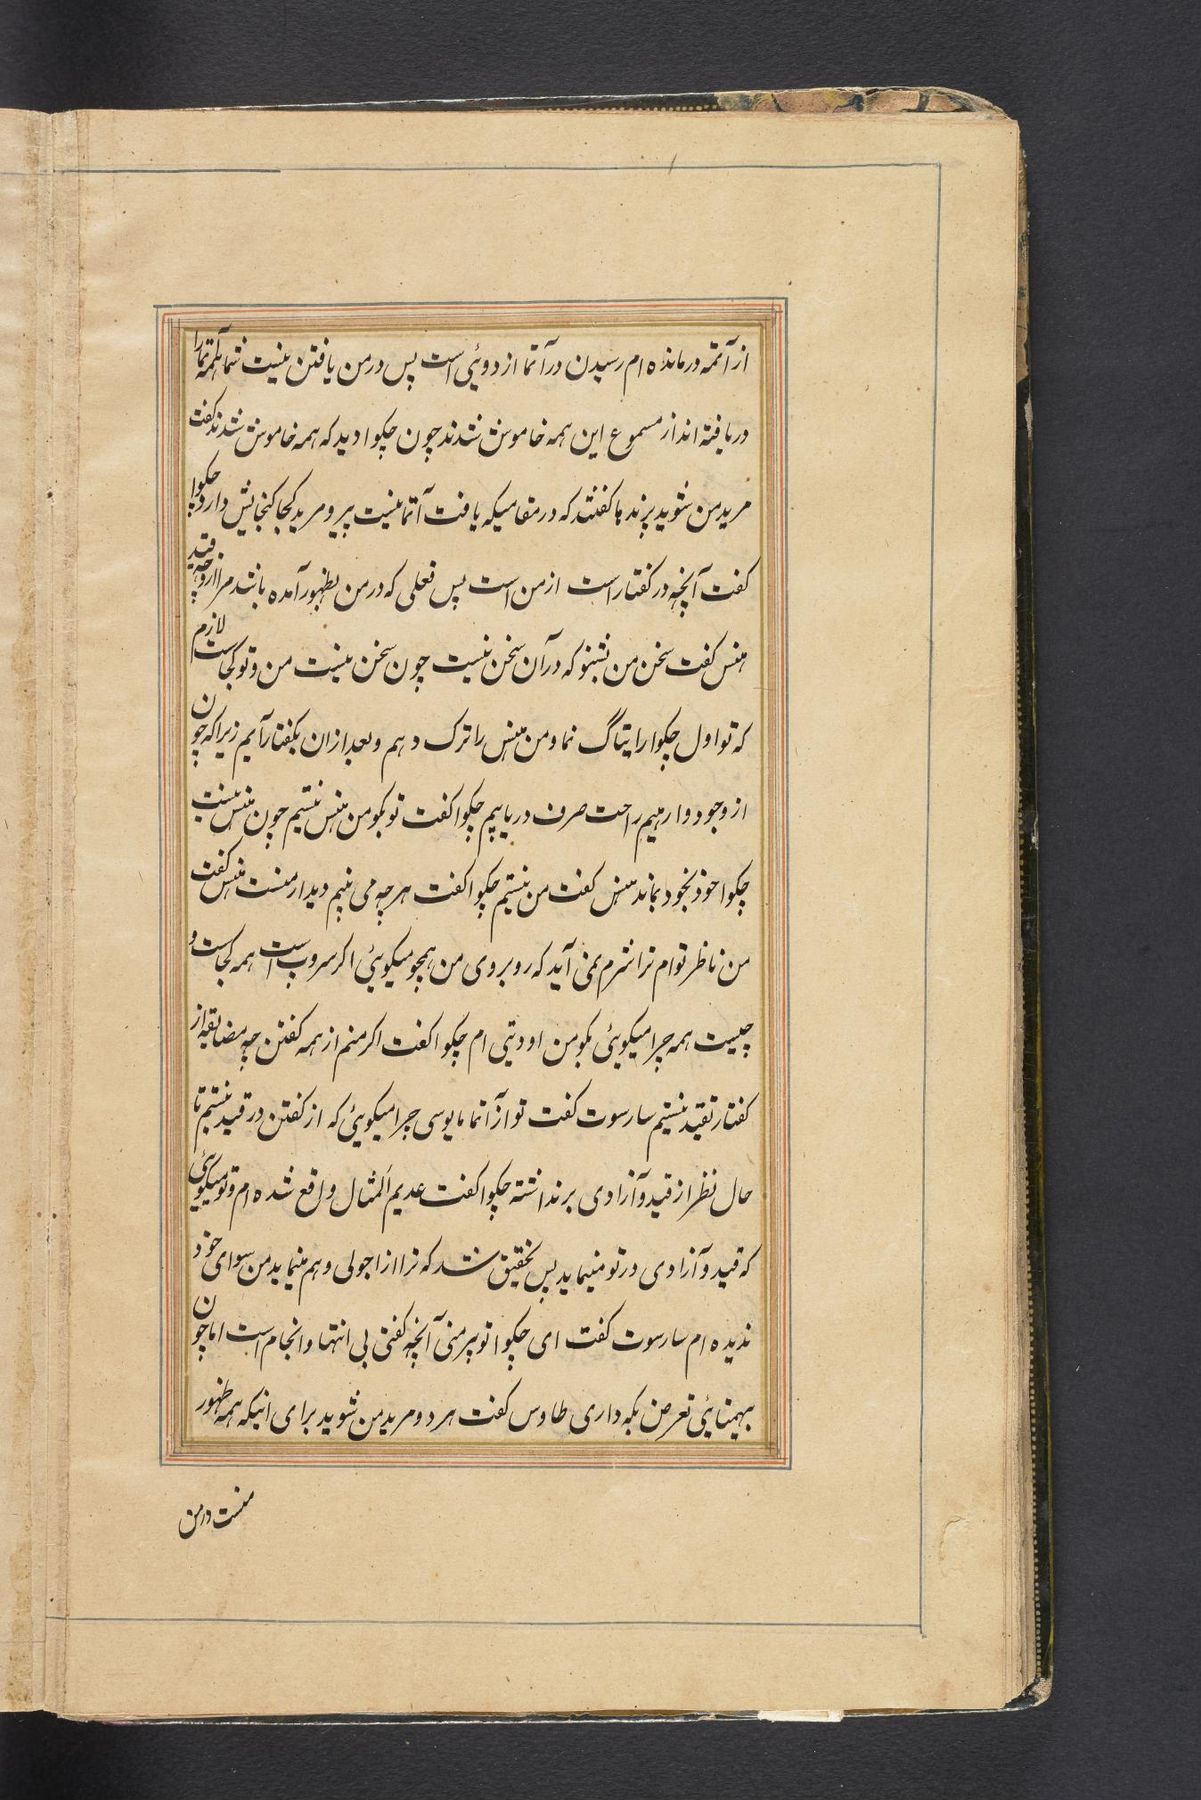 از آتمه درمانده ام رسیدن در آتما از دوئی است پس در من یافتن نیست شما که همه آتما را
دریافته اند از مسموع این همه خاموش شدند چون چکوا دید که همه خاموش شدند گفت
مرید من شوید پرندها گفتند که در مقامیکه یافت آتما نیست پیر و مرید کجا گنجایش دارد چکوا
گفت آنچه در گفتار است از من است پس فعلی که در من بظهور آمده باشد مرا از و چه قید
هنس گفت سخن من بشنو که در آن سخن نیست چون سخن نیست من و تو کجاست لازم
که تو اول چکوا را تیاگ نما و من هنس را ترک دهم و بعد ازان بگفتار آیم زیرا که چون
از وجود وارهیم راحت صرف دریابیم چکوا گفت تو بگو من هنس نیستم چون هنس نیست
چکوا خود بخود نماند هنس گفت من نیستم چکوا گفت هرچه می بینم دیدار منست هنس گفت
من ناظر توام ترا شرم نمی آید که روبروی من همچو میگوئی اگر سروپ است همه کجاست و
چیست همه چرا میگوئی بگو من ادویتی ام چکوا گفت اگر منم از همه گفتن چه مضایقه از
گفتار تقید نیستم سارسوت گفت تو از آتما مایوسی چرا میگوئی که از گفتن در قید نیستم تا
حال نظر از قید و آزادی برنداشته چکوا گفت عدیم المثال واقع شده ام و تو میگوئی
که قید و آزادی در تو مینماید پس تحقیق شد که ترا از اجولی وهم مینماید من سوای خود
ندیده ام سارسوت گفت ای چکوا تو پیر منی آنچه گفتی بی انتها و انجام است اما چون
بیهمتائی تعرض بکه داری طاوس گفت هر دو مرید من شوید برای اینکه همه ظهور
منست در من